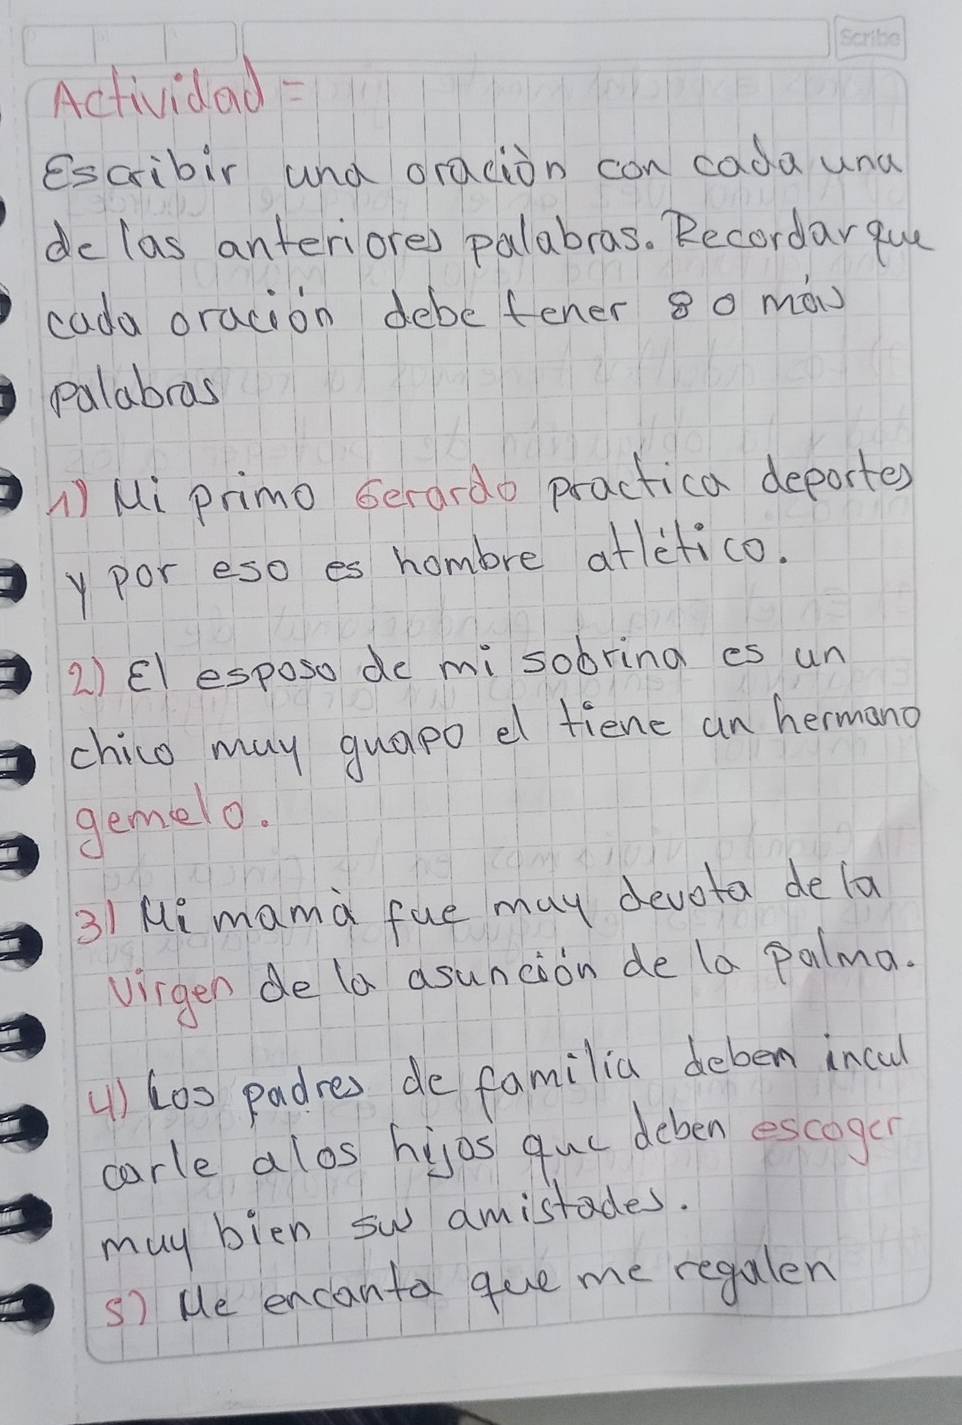 Scribe
Actividad =
Escribir una oración con cada una
de las anteriores palabras. Recordar que
cada oración debe tener 8 o más
palabras
1) Mi primo Gerardo practica deportes
y por eso es hombre atlético.
2) El esposo de mi sobrina es un
chico muy guapo el tiene un hermano
gemelo.
3) Mi mamá fue muy devota de la
virgen de la asunción de la palma.
4) Los padres de familia deben incul
carle alos hijos que deben escoger
muy bien sus amistades.
5) Me encanta que me regalen